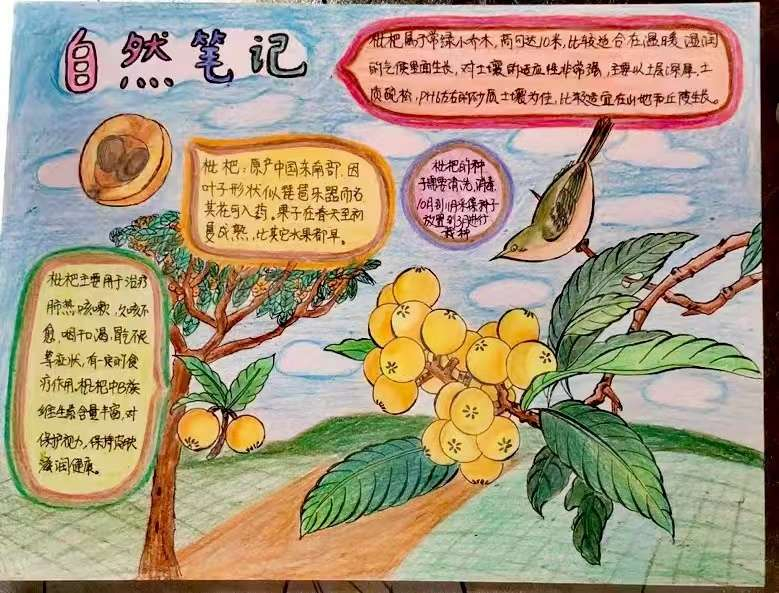 自然笔记
枇杷属于常绿小乔木，高可达10米，比较适合在温暖湿润
的气候里面生长，对土壤的适应性非常强，主要以土层深厚、土
质疏松，PH6左右的砂质土壤为佳，比较适宜在山地和丘陵生长。
枇杷：原产中国东南部，因
叶子形状似琵琶乐器而名
其花可入药。果子在春天至初
夏成熟，比其它水果都早。
枇杷的种
子需要清洗、消毒
10月到11月采集种子
放置到3月进行
栽种
枇杷主要用于治疗
肺热咳嗽，久咳不
愈，咽干口渴，胃气不良
等症状，有一定的食
疗作用，枇杷中B族
维生素含量丰富，对
保护视力，保持皮肤
滋润健康。